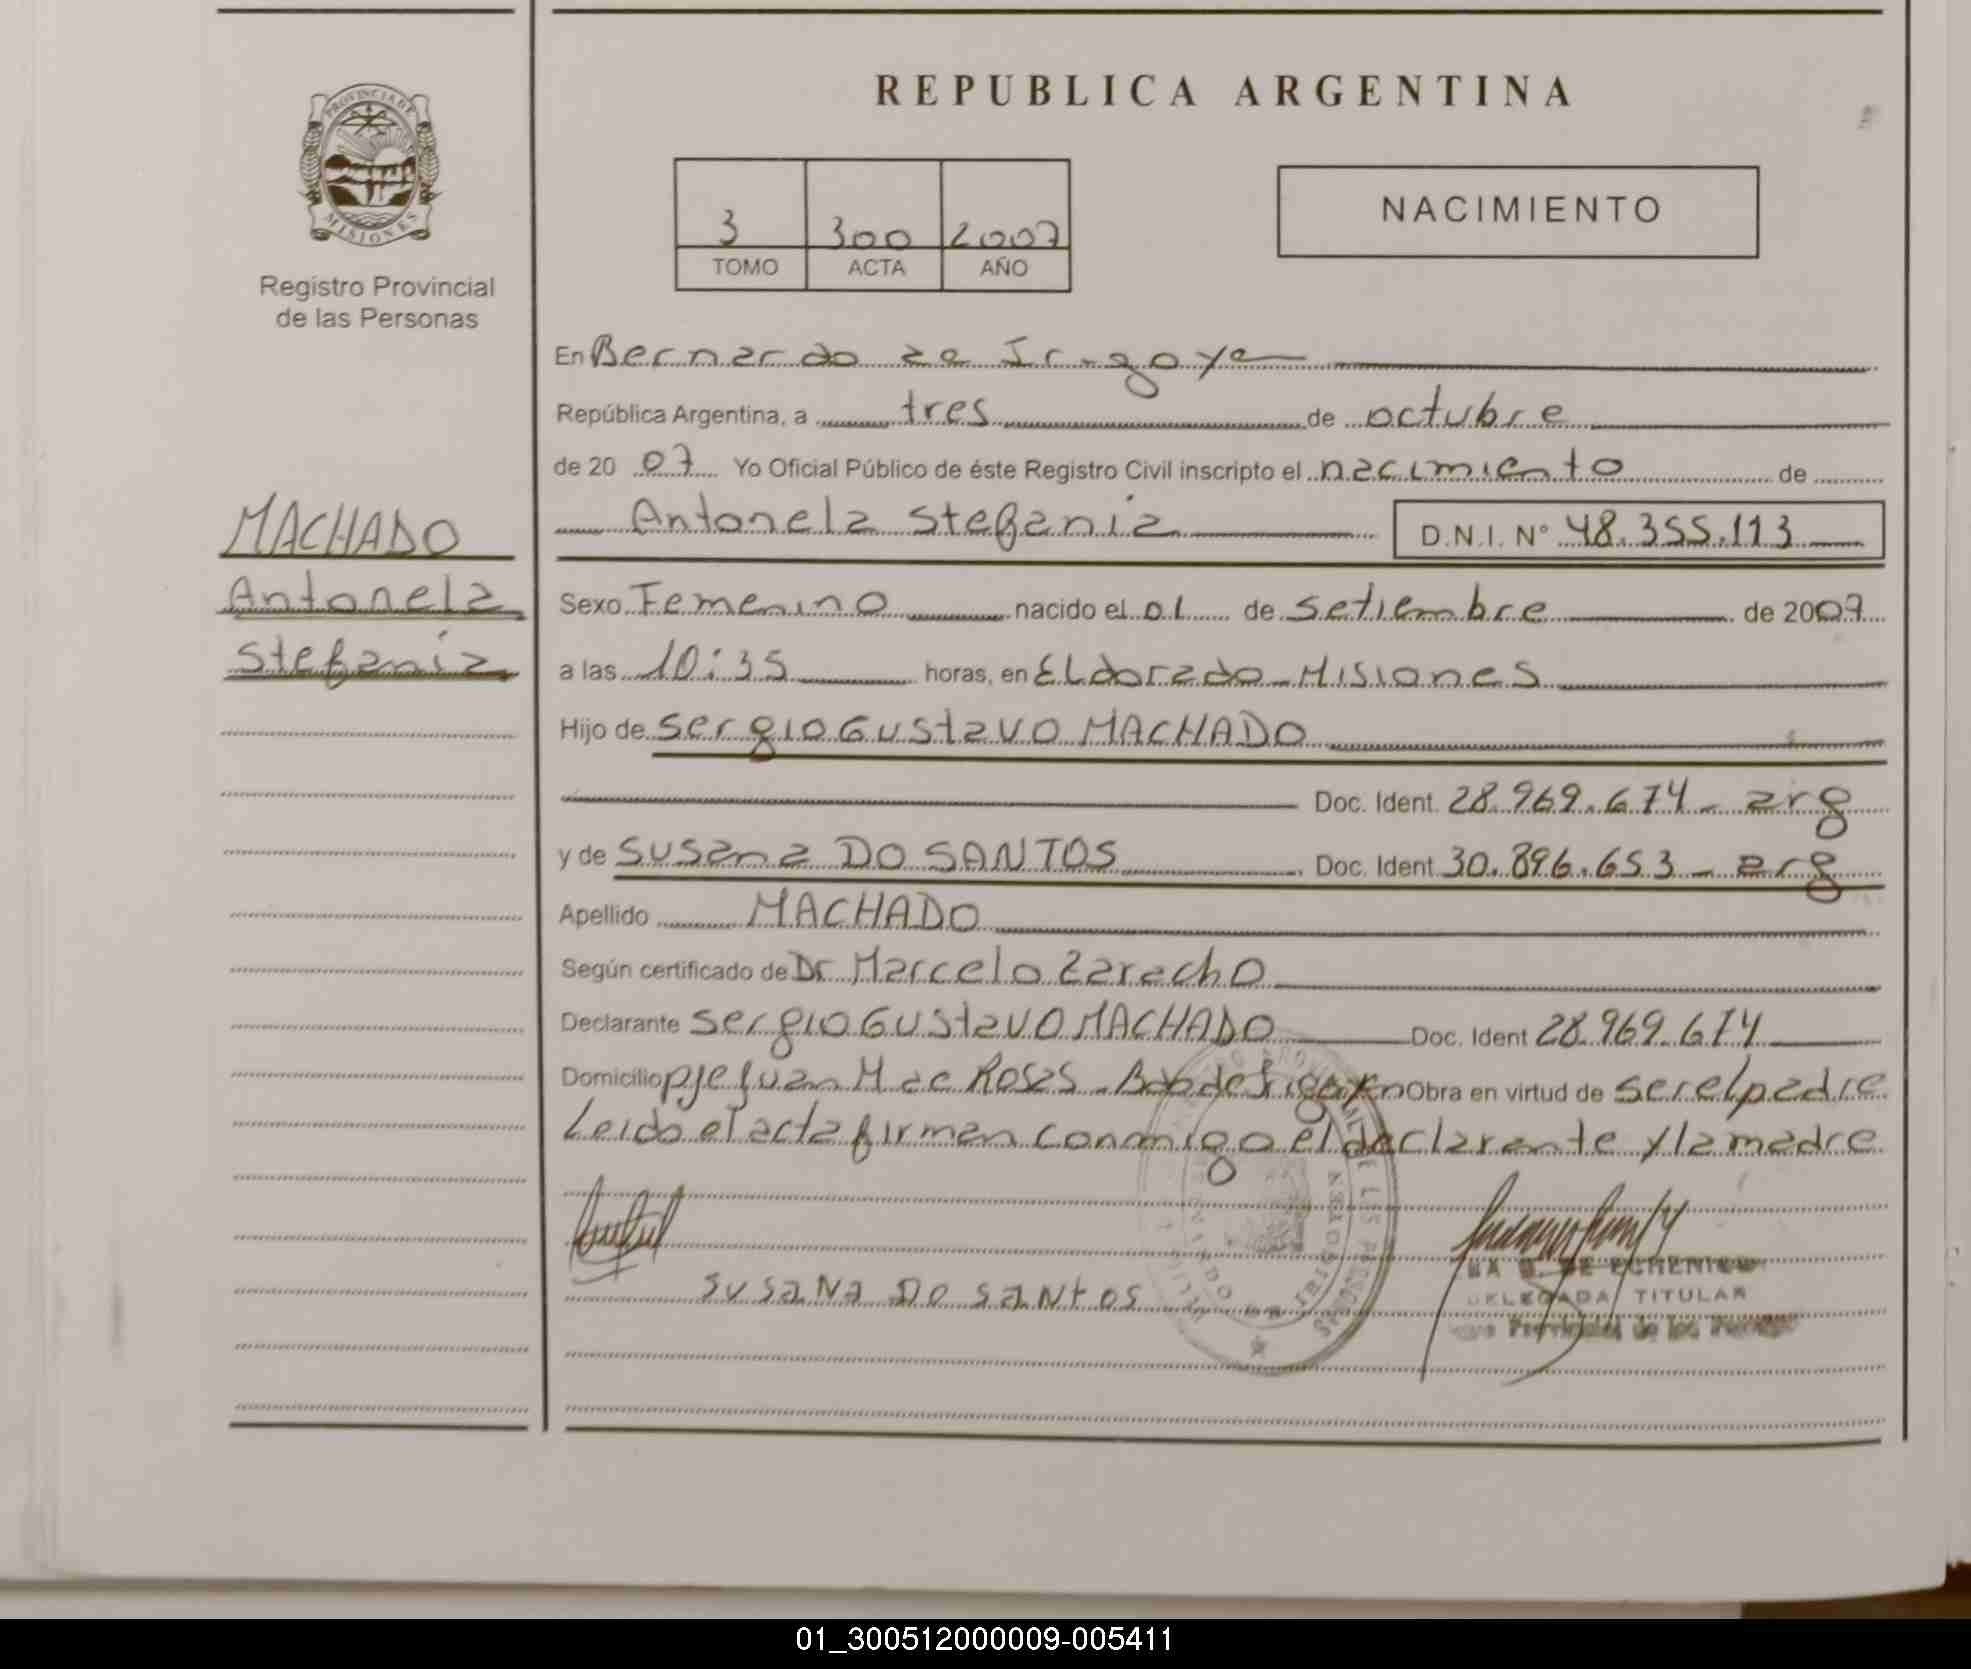 REPUBLICA ARGENTINA
PROVINCIA DE
MISIONES
Registro Provincial
de las Personas
3 300 2007
TOMO ACTA AÑO
NACIMIENTO
MACHADO
Antonela
Stefania
En Bernardo de Irigoyen
República Argentina, a tres de octubre
de 20 07 Yo Oficial Público de éste Registro Civil inscripto el nacimiento de
Antonela Stefania D.N.I. N° 48.355.113
Sexo Femenino nacido el 01 de setiembre de 2007
a las 10:35 horas, en ELdorado - Misiones
Hijo de Sergio Gustavo MACHADO
Doc. Ident. 28.969.674 - arg
y de Susana DO SANTOS Doc. Ident. 30.896.653 - arg
Apellido MACHADO
Según certificado de Dr Marcelo Zaracho
Declarante Sergio Gustavo MACHADO Doc. Ident 28.969.674
Domicilio pje Juan M de Rosas - Bdo de Irigoyen Obra en virtud de ser el padre
Leido el acta firman conmigo el declarante y la madre
SUSaNa DO SaNtOS
DE ECHENIQUE
DELEGADA TITULAR
Provincial de las
01_300512000009-005411